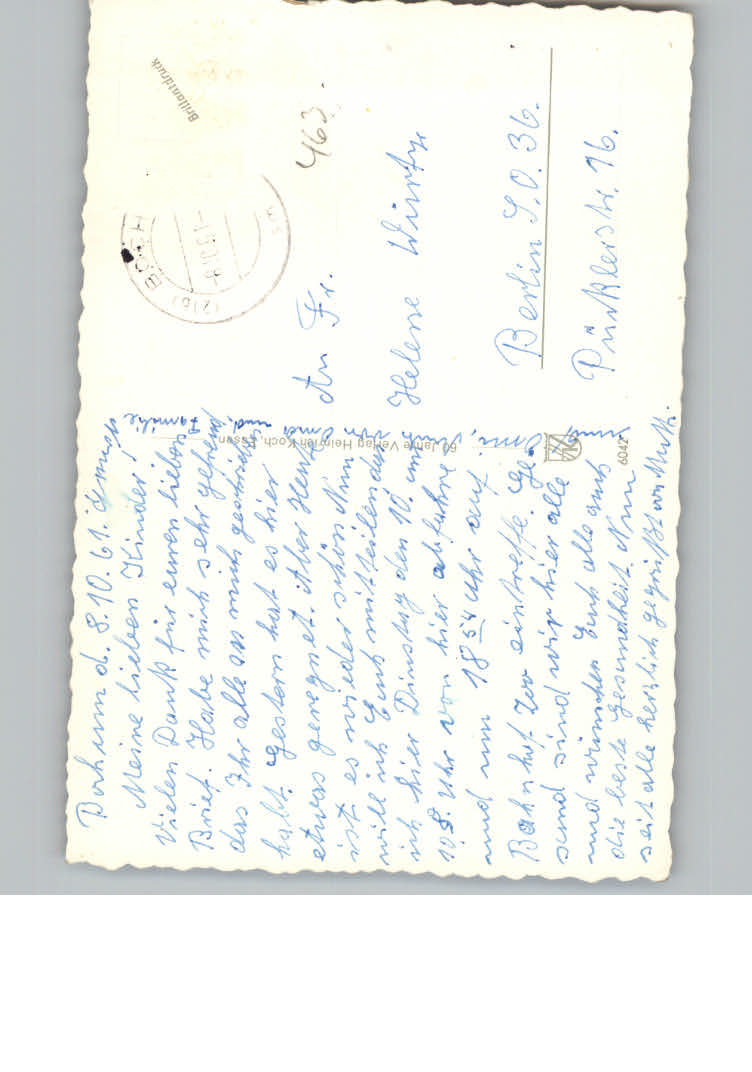 Bochum d. 8.10.61.
Meine lieben Kinder!
Vielen Dank für euren lieben
Brief. Habe mich sehr gefreut
das Ihr alle an mich geschrieben
habt. Gestern hat es hier
etwas geregnet. Aber Heute
ist es wieder schön. Nun
will ich Euch mitteilen das
ich hier Dinstag den 10. um
10 Uhr von hier abfahre
und um 18 54 Uhr auf
Bahnhof Zoo eintreffe. Ge-
sund sind wir hier alle
und wünschen Euch alle auch
die beste Gesundheit. Nun
seit alle herzlich gegrüßt von Mutti.
Omi,
Oma und
Familie
An Fr.
Helene Würtz
Berlin S.O. 36.
Pücklerstr. 16.
463.
Brillantdruck
(21b) BOCHUM
60 Jahre Verlag Heinrich Koch, Essen
6042